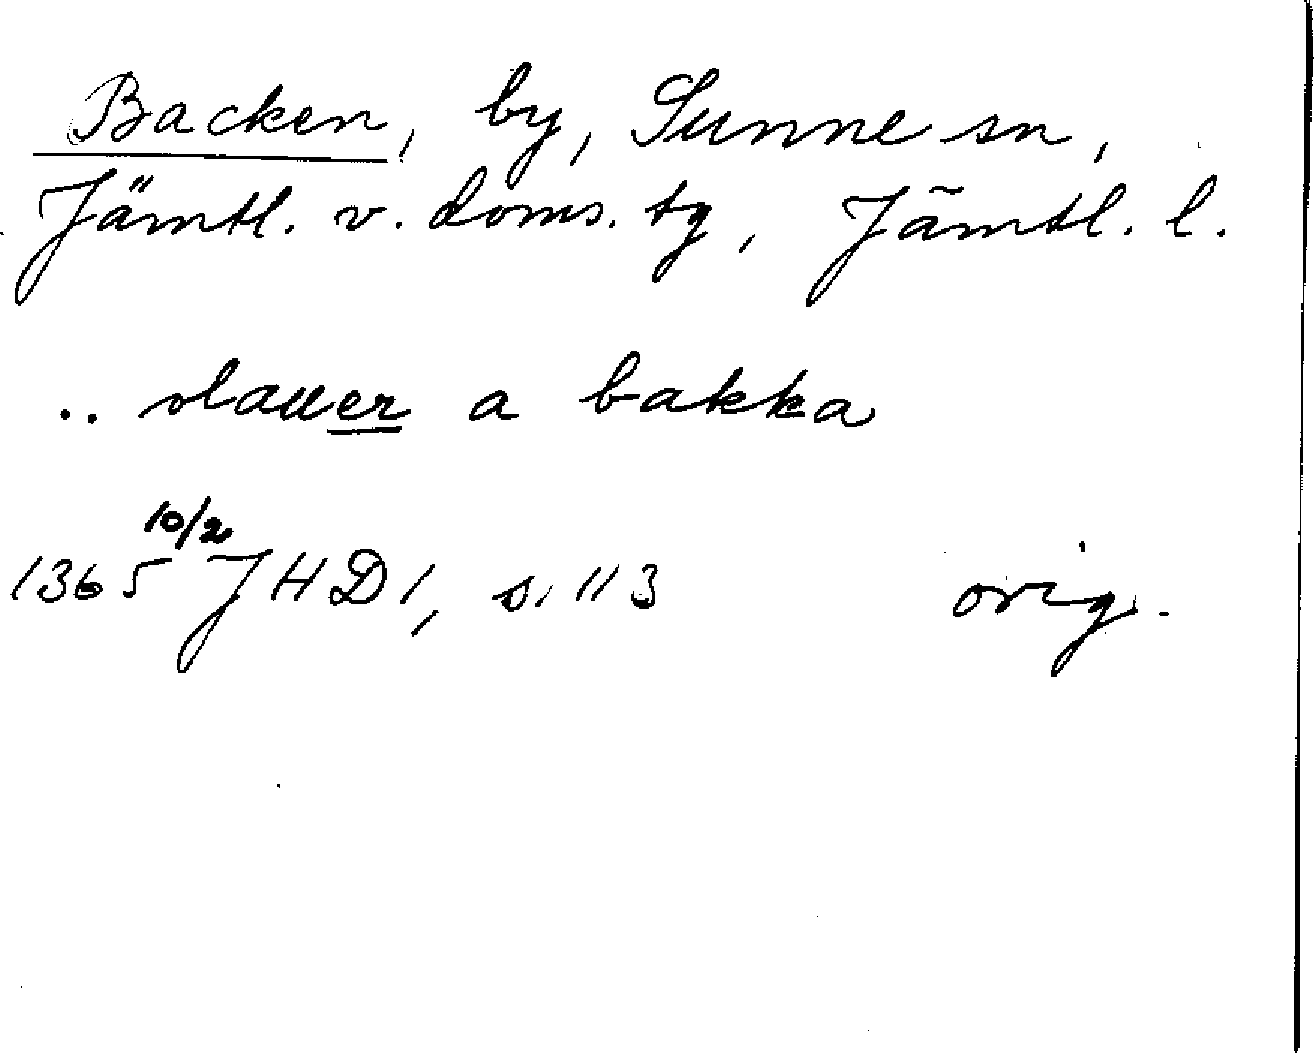 Backen, by, Sunne sn,
Jämtl. v. doms. tg, Jämtl. l.
.. slauer a bakka
10/2
1365 JHD 1, s. 113 orig.